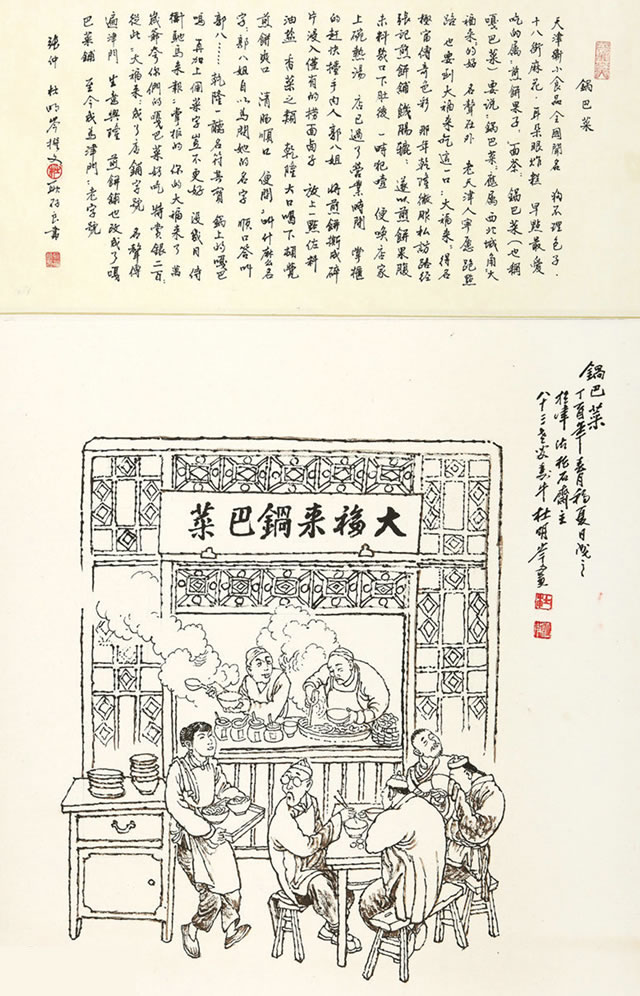 鍋巴菜
天津衛小食品全國聞名 狗不理包子、
十八街麻花、耳朵眼炸糕 早點最愛
吃的屬:煎餅果子、面茶、鍋巴菜(也稱
嘎巴菜)要说:鍋巴菜:應属西北城角:大
福来:的好 名聲在外 老天津人寧愿跑點
路 也要到大福来吃這一口:大福来:得名
極富傳奇色彩 那年乾隆微服私訪路经
张记煎餅铺 饑腸轆:遂以煎餅果腹
料幾口下肚後 一時犯噎 便唤店家
上碗熱湯 店已過了營業時間 掌櫃
的赶快 手内人郭八姐 將煎餅撕成碎
片浸入僅有的捞面卤子 放上一點佐料
油盐 香菜之類 乾隆大口喝下頓覺
煎餅爽口 清肠顺口 便問:叫什麽名
字:郭八姐自以爲問她的名字 順口答叫
郭八……乾隆一聽名符其實 鍋的嘎巴
嗎 再加上個菜字豈不更好 没幾日侍
衛馳馬来報:掌柜的 你的大福来了 萬
歲爺夸你們的嘎巴菜好吃 特賞银二百:
從此:大福来:成了店鋪字號 名聲傳
遍津門 生意興隆 煎餅铺也改成了嘎
巴菜鋪 至今成爲津門:老字號
張仲 杜明岑撰文 良書
鍋巴菜
丁酉年春月初夏日成之
於津沽 石齋主
八十三老 杜明岑画
大福来鍋巴菜